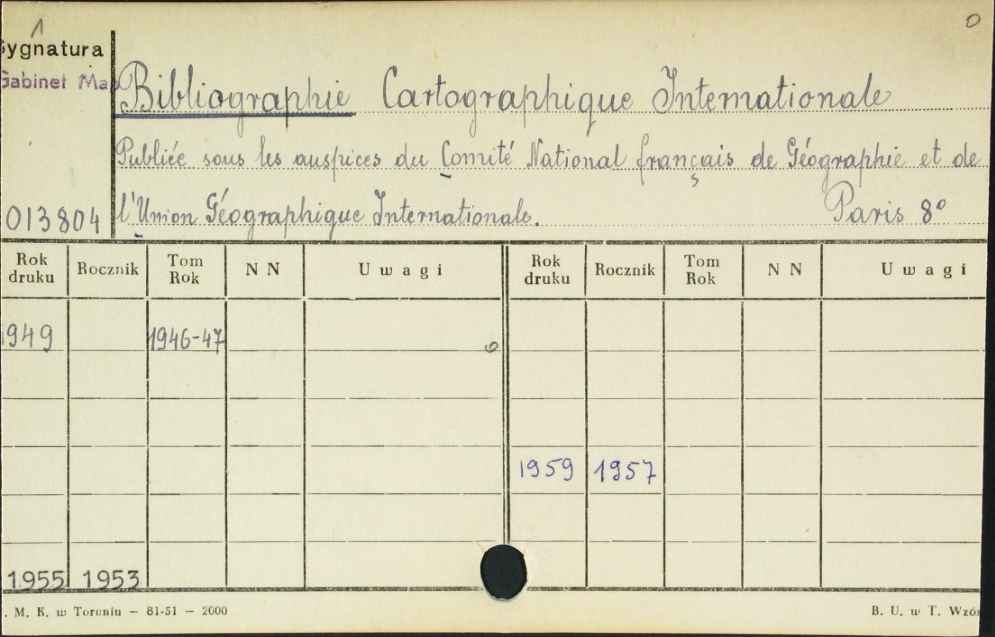 1 0
Sygnatura
Gabinet Map
Bibliographie Cartographique Internationale
Publiée sous les auspices du Comité National français de Géographie et de
013804 l'Union Géographique Internationale. Paris 8°
Rok druku Rocznik Tom Rok N N Uwagi Rok druku Rocznik Tom Rok N N Uwagi
1949 1946-47
1959 1957
1955 1953
. M. K. w Toruniu — 81-51 — 2000 B. U. w T. Wzór